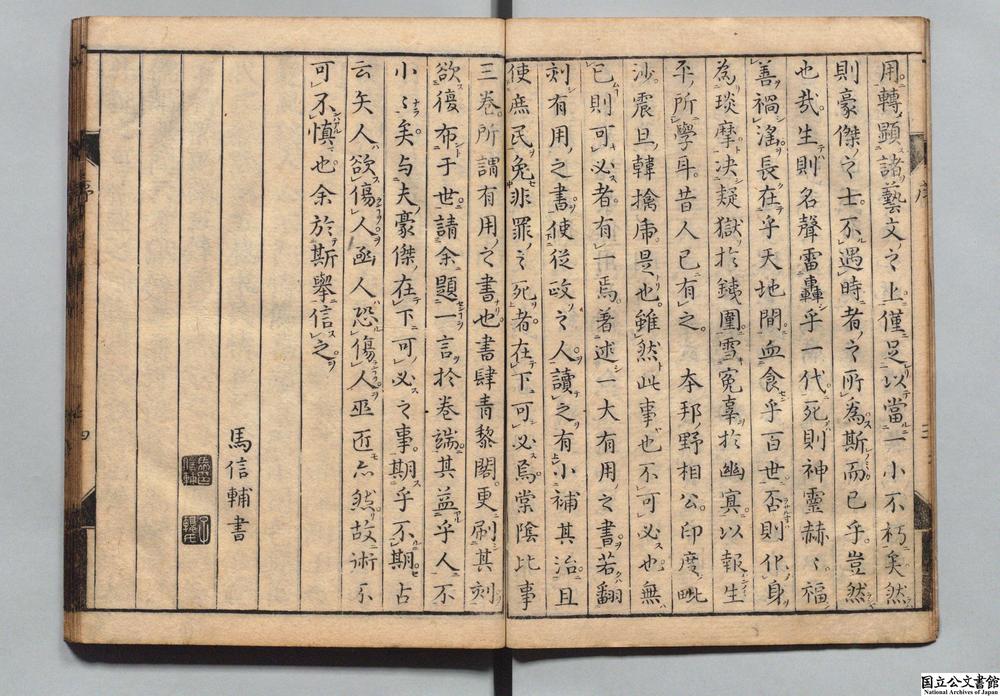 用轉顯諸藝文之上僅足以當一小不朽矣然
則豪傑之士不遇時者之所為斯而已乎豈然
也哉生則名聲雷轟乎一代死則神靈赫〻福
善禍滛長在乎天地間血食乎百世否則化身
為琰摩决疑獄於鉄圍雪寃辜於幽㝠以報生
平所學耳昔人已有之 夲邦野相公印度毗
沙震旦韓擒虎是也雖然此事也不可必也無
已則可必者有一焉著述一大有用之書若翻
刻有用之書使從政之人讀之有小補其治且
使庶民免非罪之死者在下可必焉棠陰比事
三卷所謂有用之書也書肆青黎閣更刷其刻
欲復布于世請余題一言於卷端其益乎人不
小〻矣与夫豪傑在下可必之事期乎不期占
云矢人欲傷人凾人恐傷人巫匠亦然故術不
可不慎也余於斯舉信之
馬信輔書
序
四
国立公文書館
National Archives of Japan